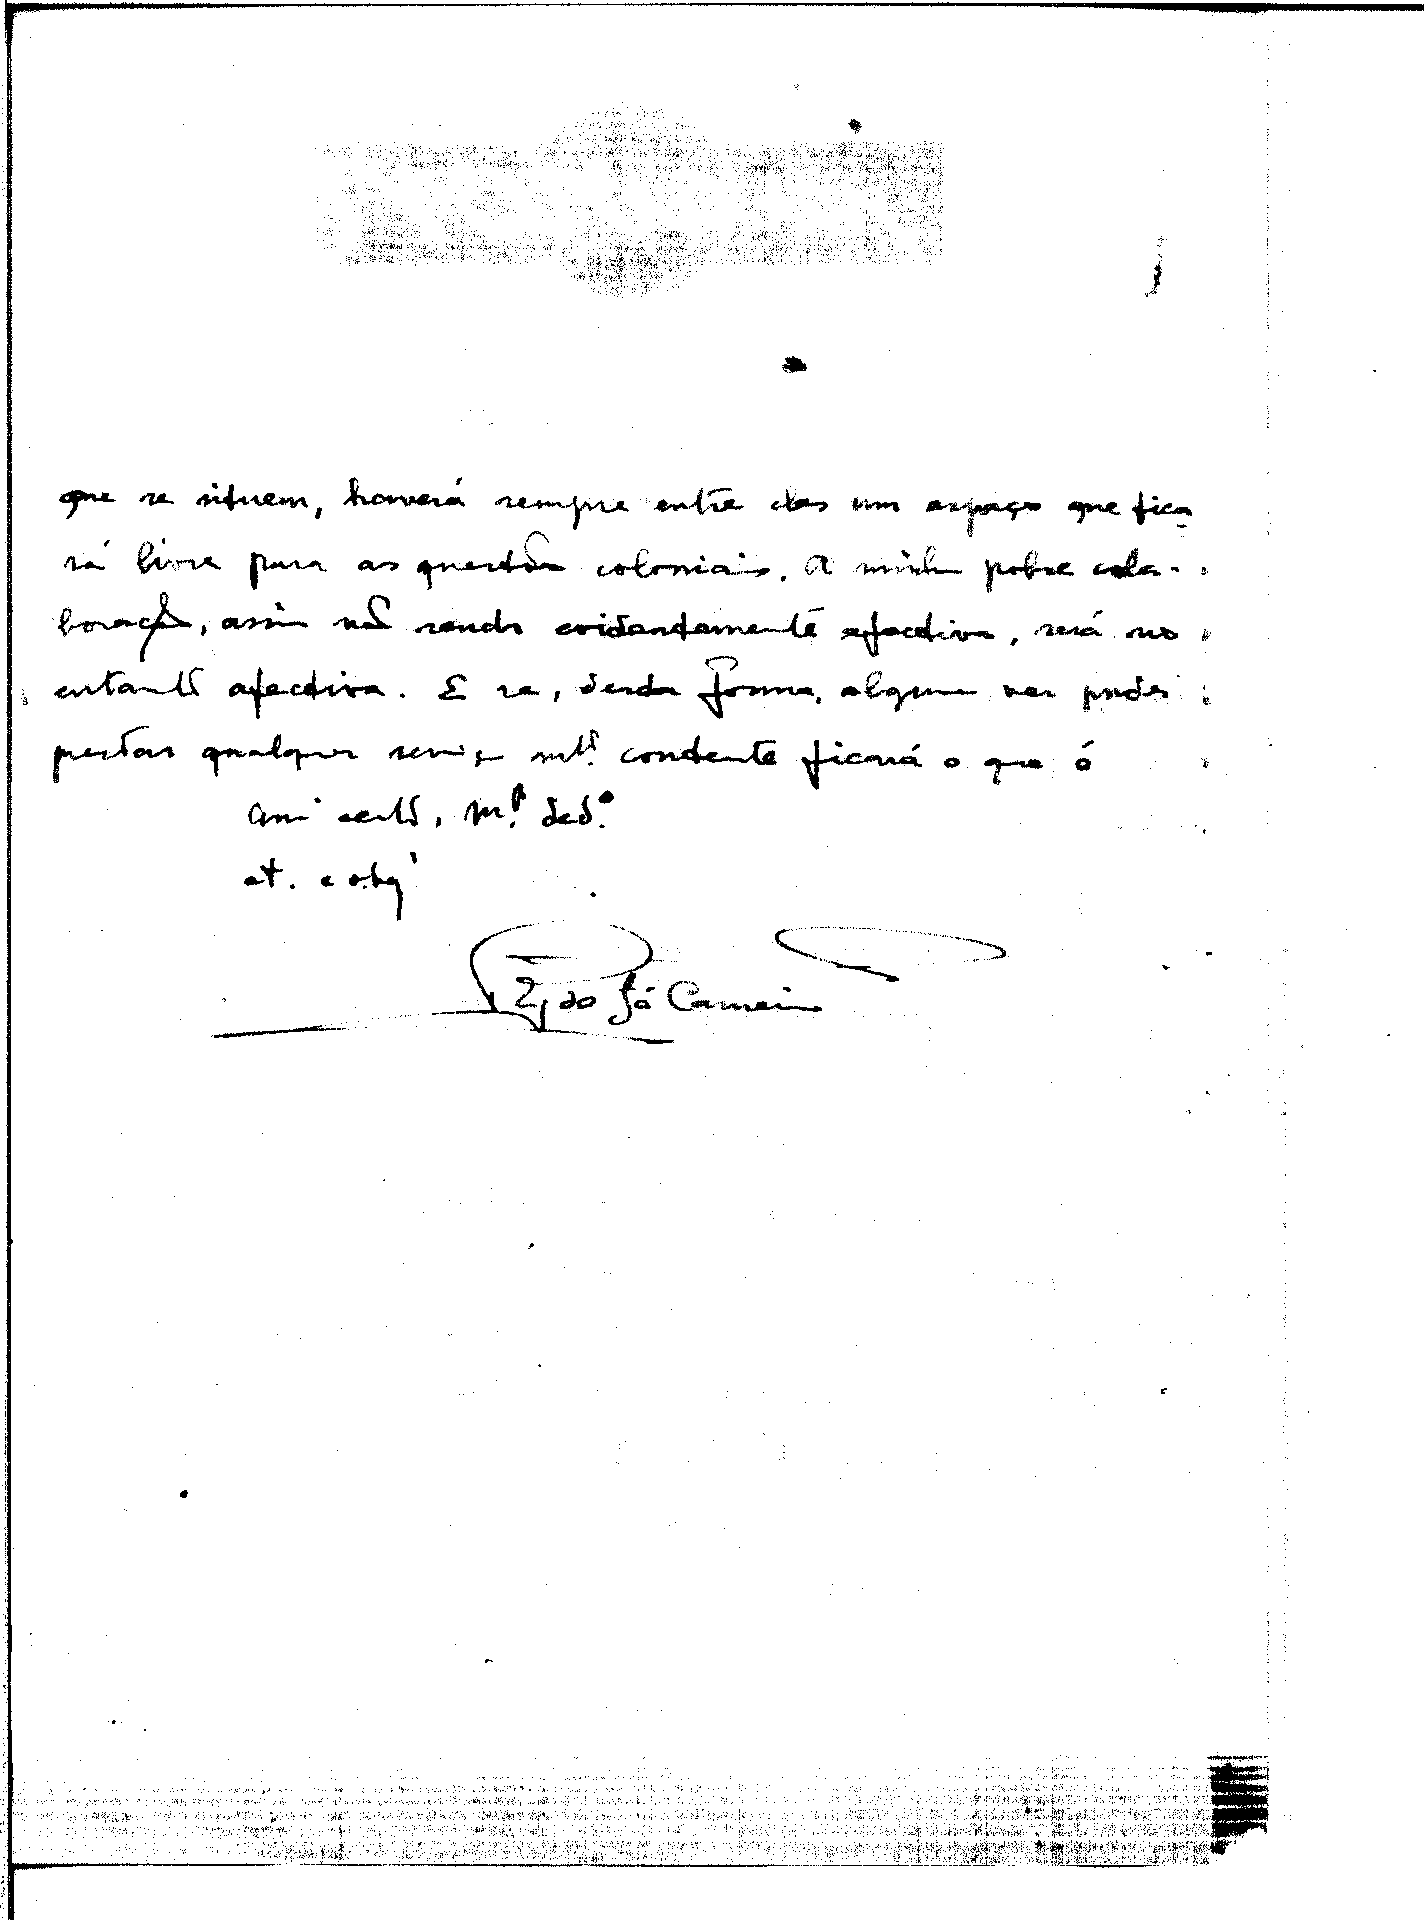 que se situem, haverá sempre entre eles um espaço que fica
rá livre para as questões coloniais. A minha pobre cola-
boração, assim não sendo evidentemente efectiva, será no
entantº afectiva. E se, desta forma, alguma vez puder
prestar qualquer serviço mtº. contente ficará o que é
am certº, mº. dedº.
at. e obgº
de Sá Carneiro